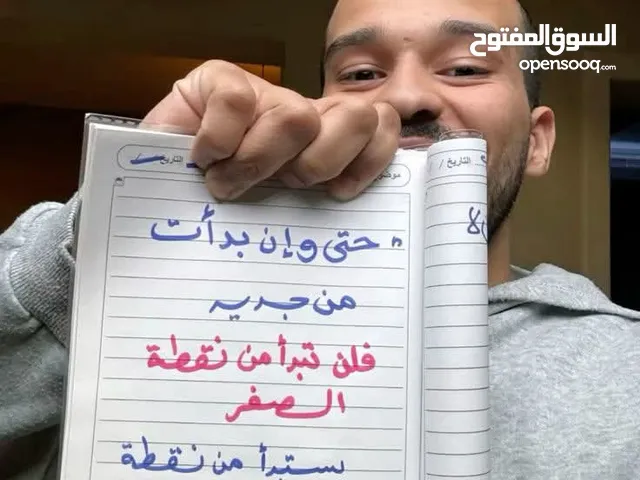 السوق المفتوح
opensooq.com
التاريخ /
التاريخ /
" حتى وإن بدأت
من جديد
فلن تبدأ من نقطة
الصفر
ستبدأ من نقطة